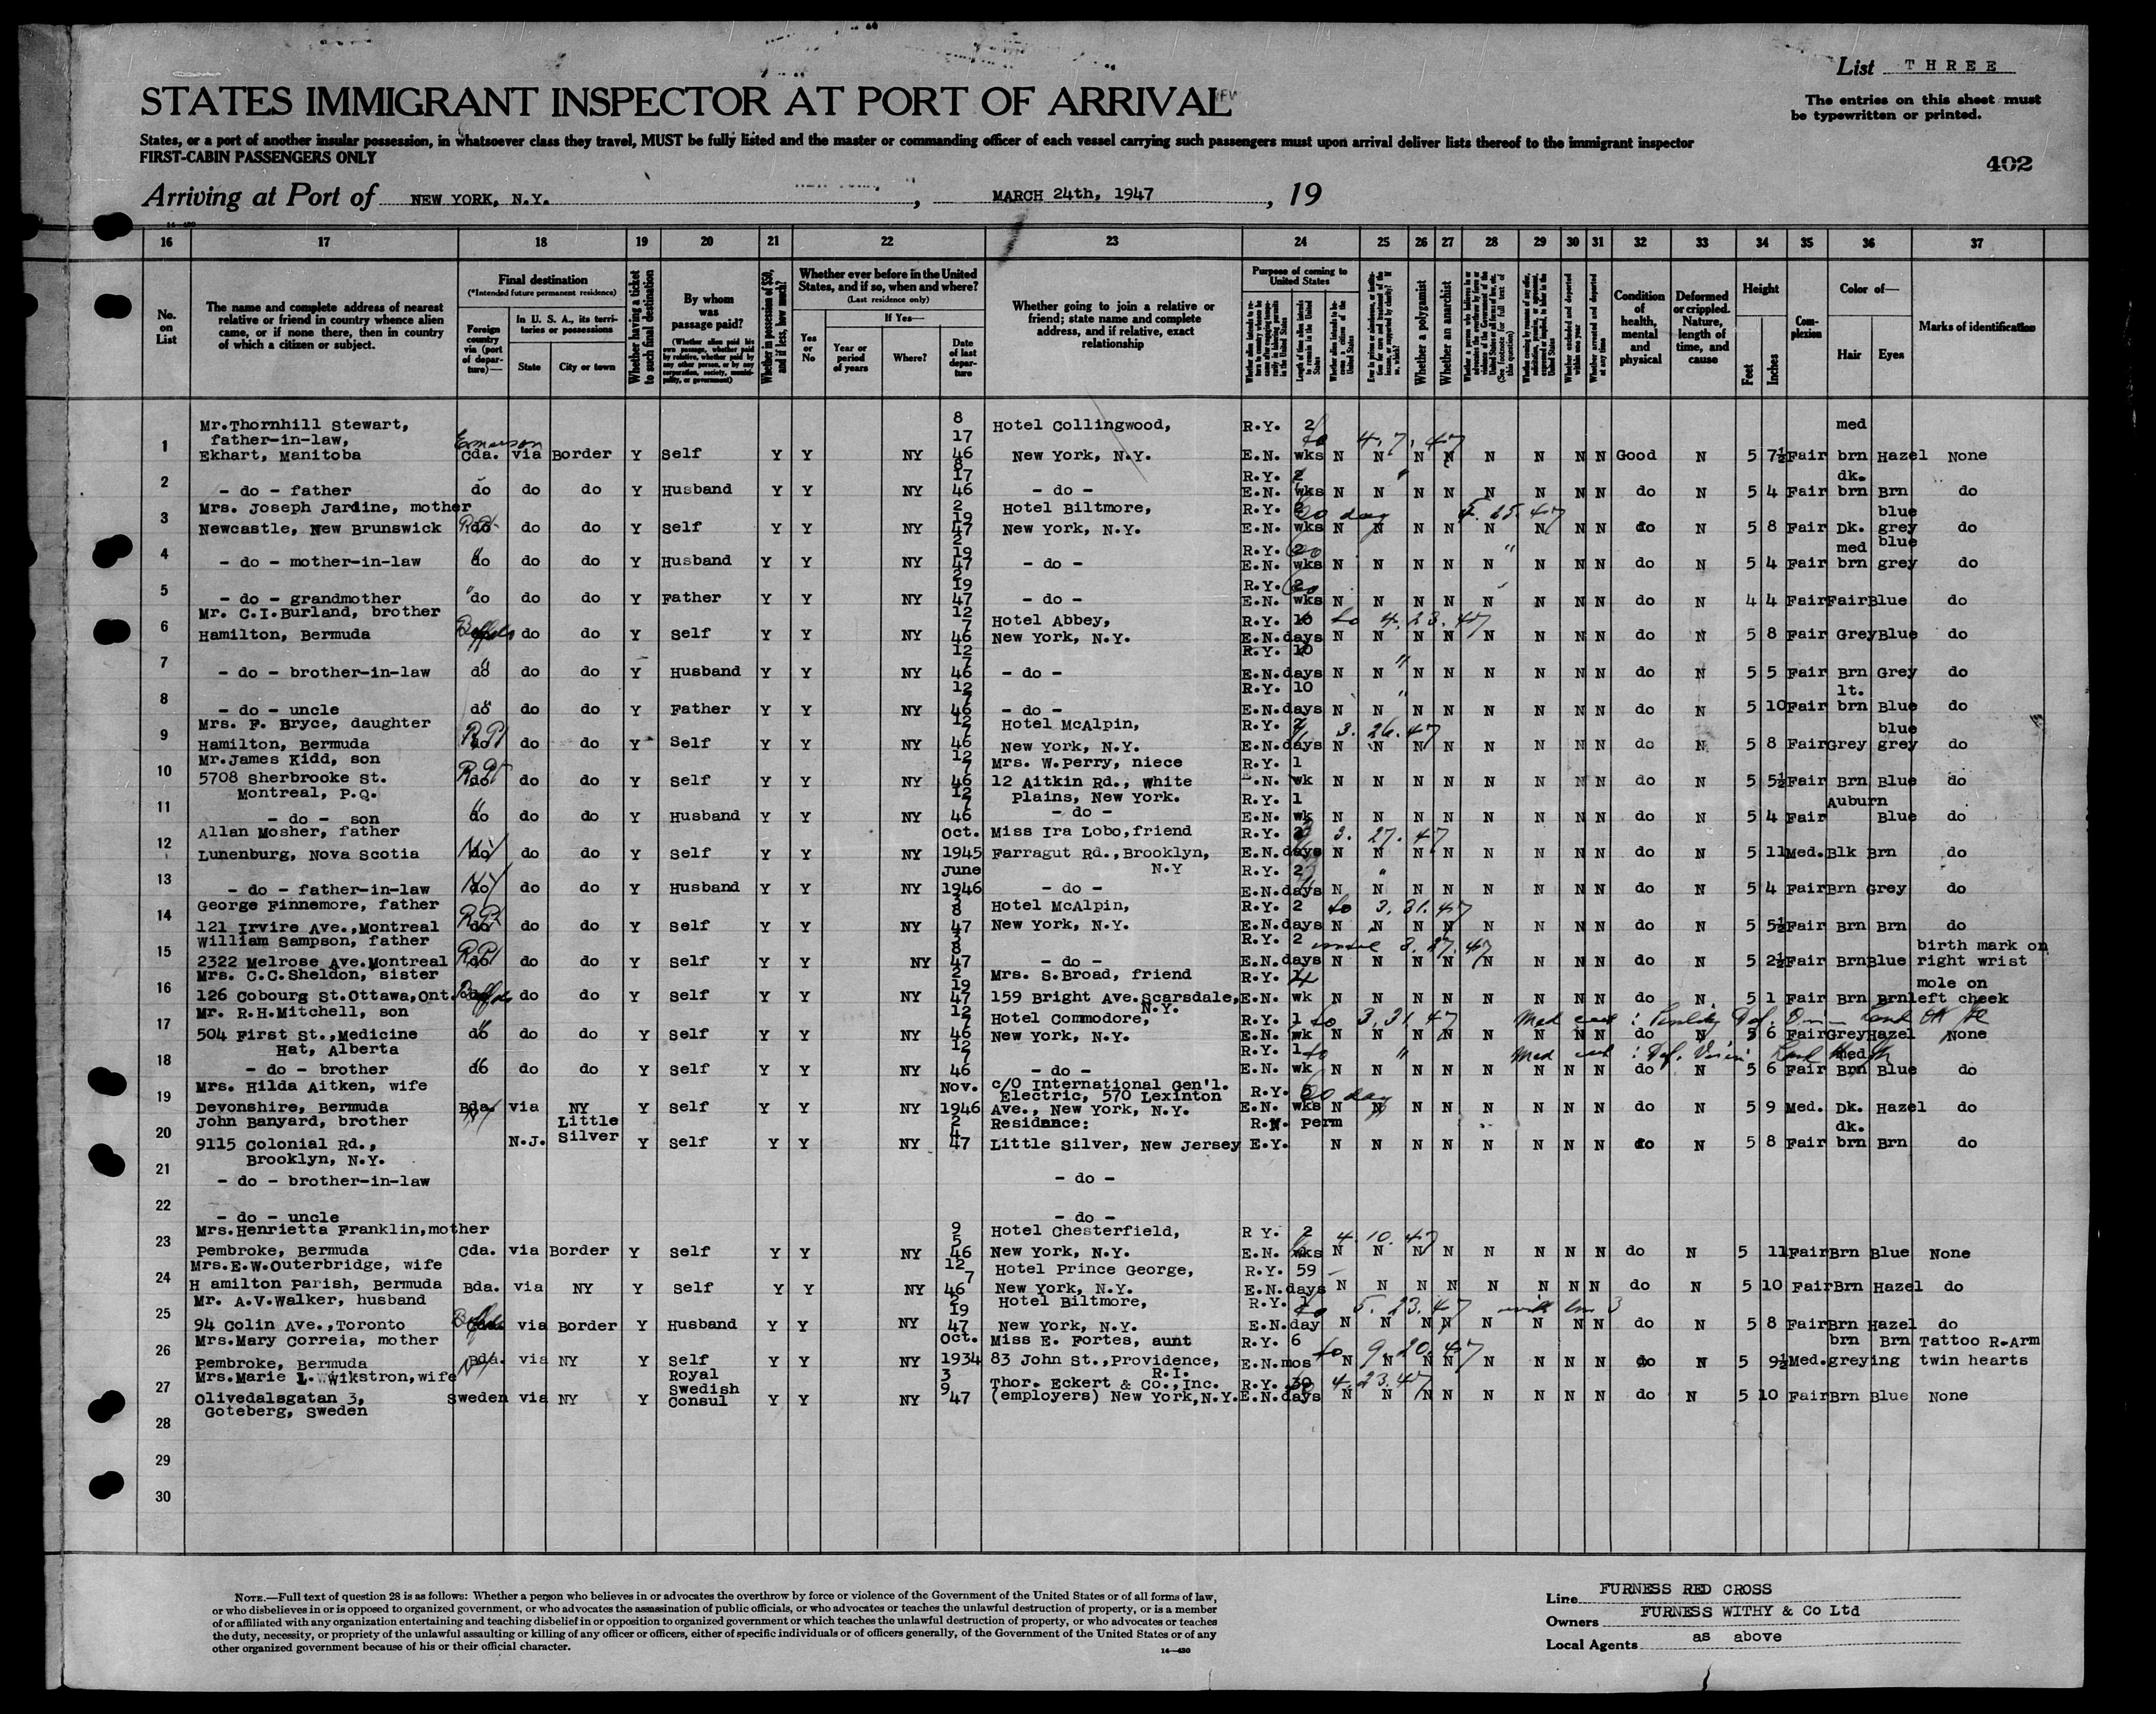 List THREE
STATES IMMIGRANT INSPECTOR AT PORT OF ARRIVAL
The entries on this sheet must
be typewritten or printed.
States, or a port of another insular possession, in whatsoever class they travel, MUST be fully listed and the master or commanding officer of each vessel carrying such passengers must upon arrival deliver lists thereof to the immigrant inspector
FIRST-CABIN PASSENGERS ONLY
402
Arriving at Port of NEW YORK, N.Y. , MARCH 24th, 1947 , 19
16 17 18 19 20 21 22 23 24 25 26 27 28 29 30 31 32 33 34 35 36 37
No. on List
The name and complete address of nearest relative or friend in country whence alien came, or if none there, then in country of which a citizen or subject.
Final destination
(*Intended future permanent residence)
Foreign country via (port of departure)—
In U. S. A., its territories or possessions
State
City or town
Whether having a ticket to such final destination
By whom was passage paid?
(Whether alien paid his own passage, whether paid by relative, whether paid by any other person, or by any corporation, society, municipality, or government)
Whether in possession of $50, and if less, how much?
Whether ever before in the United States, and if so, when and where?
(Last residence only)
Yes or No
If Yes—
Year or period of years
Where?
Date of last departure
Whether going to join a relative or friend; state name and complete address, and if relative, exact relationship
Purpose of coming to United States
Whether a polygamist
Whether an anarchist
Condition of health, mental and physical
Deformed or crippled. Nature, length of time, and cause
Height
Feet
Inches
Complexion
Color of—
Hair
Eyes
Marks of identification
Mr.Thornhill Stewart, 8 Hotel Collingwood, R.Y. 2 med
father-in-law, 17 to 4.7.47
1 Ekhart, Manitoba Emerson Cda. via Border Y Self Y Y NY 46 New York, N.Y. E.N. wks N N N N N N N N Good N 5 7½ Fair brn Hazel None
8 17 R.Y. 2 dk.
2 - do - father do do do Y Husband Y Y NY 46 - do - E.N. wks N N N N N N N N do N 5 4 Fair brn Brn do
Mrs. Joseph Jardine, mother 2 19 Hotel Biltmore, R.Y. 2 60 day 5.25.47 blue
3 Newcastle, New Brunswick do do do Y Self Y Y NY 47 New York, N.Y. E.N. wks N N N N N N N N do N 5 8 Fair Dk. grey do
2 19 R.Y. 2 med blue
4 - do - mother-in-law do do do Y Husband Y Y NY 47 - do - E.N. wks N N N N N N N N do N 5 4 Fair brn grey do
2 19 R.Y. 2
5 - do - grandmother do do do Y Father Y Y NY 47 - do - E.N. wks N N N N N N N N do N 4 4 Fair Fair Blue do
Mr. C.I.Burland, brother 12 7 Hotel Abbey, R.Y. 10 to 4.23.47
6 Hamilton, Bermuda Buffalo do do Y Self Y Y NY 46 New York, N.Y. E.N. days N N N N N N N N do N 5 8 Fair Grey Blue do
12 7 R.Y. 10
7 - do - brother-in-law do do do Y Husband Y Y NY 46 - do - E.N. days N N N N N N N N do N 5 5 Fair Brn Grey do
12 7 R.Y. 10 lt.
8 - do - uncle do do do Y Father Y Y NY 46 - do - E.N. days N N N N N N N N do N 5 10 Fair brn Blue do
Mrs. F. Bryce, daughter 12 7 Hotel McAlpin, R.Y. 2 3.26.47 blue
9 Hamilton, Bermuda do do do Y Self Y Y NY 46 New York, N.Y. E.N. days N N N N N N N N do N 5 8 Fair Grey grey do
Mr.James Kidd, son 12 7 Mrs. W.Perry, niece R.Y. 1
10 5708 Sherbrooke St. do do do Y Self Y Y NY 46 12 Aitkin Rd., White .N. wk N N N N N N N N do N 5 5½ Fair Brn Blue do
Montreal, P.Q. 12 7 Plains, New York. R.Y. 1 Auburn
11 - do - son do do do Y Husband Y Y NY 46 - do - E.N. wk N N N N N N N N do N 5 4 Fair Blue do
Allan Mosher, father Oct. Miss Ira Lobo, friend R.Y. 2 3.27.47
12 Lunenburg, Nova Scotia NY do do do Y Self Y Y NY 1945 Farragut Rd., Brooklyn, E.N. days N N N N N N N N do N 5 11 Med. Blk Brn do
June N.Y R.Y. 2
13 - do - father-in-law NY do do do Y Husband Y Y NY 1946 - do - E.N. days N N N N N N N N do N 5 4 Fair Brn Grey do
George Finnemore, father 3 8 Hotel McAlpin, R.Y. 2 to 3.31.47
14 121 Irvire Ave., Montreal do do do Y Self Y Y NY 47 New York, N.Y. E.N. days N N N N N N N N do N 5 5½ Fair Brn Brn do
William Sampson, father 3 8 R.Y. 2 3.27.47 birth mark on
15 2322 Melrose Ave. Montreal do do do Y Self Y Y NY 47 - do - E.N. days N N N N N N N N do N 5 2½ Fair Brn Blue right wrist
Mrs. C.C.Sheldon, sister 2 19 Mrs. S.Broad, friend R.Y. mole on
16 126 Cobourg St.Ottawa,Ont. Buffalo do do Y Self Y Y NY 47 159 Bright Ave. Scarsdale, N.Y. E.N. wk N N N N N N N N do N 5 1 Fair Brn Brn left cheek
Mr. R.H.Mitchell, son 12 7 Hotel Commodore, R.Y. 1 to 3.31.47 Med cert : Def.
17 504 First St., Medicine do do do Y Self Y Y NY 46 New York, N.Y. E.N. wk N N N N N N N N do N 5 6 Fair Grey Hazel None
Hat, Alberta 12 7 R.Y. 1 to " Med cert : Def. Vision med
18 - do - brother do do do Y Self Y Y NY 46 - do - E.N. wk N N N N N N N N do N 5 6 Fair Brn Blue do
Mrs. Hilda Aitken, wife Nov. c/o International Gen'l. Electric, 570 Lexinton R.Y. 60 day
19 Devonshire, Bermuda Bda. via NY Y Self Y Y NY 1946 Ave., New York, N.Y. E.N. wks N N N N N N N N do N 5 9 Med. Dk. Hazel do
John Banyard, brother Little 2 4 Residence: R.N. perm dk.
20 9115 Colonial Rd., N.J. Silver Y Self Y Y NY 47 Little Silver, New Jersey E.Y. N N N N N N N N do N 5 8 Fair brn Brn do
Brooklyn, N.Y.
21 - do - brother-in-law - do -
22 - do - uncle - do -
Mrs.Henrietta Franklin,mother 9 5 Hotel Chesterfield, R Y. 2 4.10.47
23 Pembroke, Bermuda Cda. via Border Y Self Y Y NY 46 New York, N.Y. E.N. wks N N N N N N N N do N 5 11 Fair Brn Blue None
Mrs.E.W.Outerbridge, wife 12 7 Hotel Prince George, R.Y. 59
24 H amilton Parish, Bermuda Bda. via NY Y Self Y Y NY 46 New York, N.Y. E.N. days N N N N N N N N do N 5 10 Fair Brn Hazel do
Mr. A.V.Walker, husband 2 19 Hotel Biltmore, R.Y. to 5.23.47 with line 3
25 94 Colin Ave., Toronto via Border Y Husband Y Y NY 47 New York, N.Y. E.N. day N N N N N N N N do N 5 8 Fair Brn Hazel do
Mrs.Mary Correia, mother Oct. Miss E. Fortes, aunt R.Y. 6 to 9.20.47 brn Brn Tattoo R.Arm
26 Pembroke, Bermuda Bda. via NY Y Self Y Y NY 1934 83 John St., Providence, R.I. E.N. mos N N N N N N N N do N 5 9½ Med. greying twin hearts
Mrs.Marie L. Wikstron, wife Royal Swedish 3 9 Thor. Eckert & Co., Inc. R.Y. 30 4.23.47
27 Olivedalsgatan 3, Sweden via NY Y Consul Y Y NY 47 (employers) New York, N.Y. E.N. days N N N N N N N N do N 5 10 Fair Brn Blue None
Goteberg, Sweden
28
29
30
NOTE.—Full text of question 28 is as follows: Whether a person who believes in or advocates the overthrow by force or violence of the Government of the United States or of all forms of law,
or who disbelieves in or is opposed to organized government, or who advocates the assassination of public officials, or who advocates or teaches the unlawful destruction of property, or is a member
of or affiliated with any organization entertaining and teaching disbelief in or opposition to organized government or which teaches the unlawful destruction of property, or who advocates or teaches
the duty, necessity, or propriety of the unlawful assaulting or killing of any officer or officers, either of specific individuals or of officers generally, of the Government of the United States or of any
other organized government because of his or their official character.
14—430
Line FURNESS RED CROSS
Owners FURNESS WITHY & Co Ltd
Local Agents as above